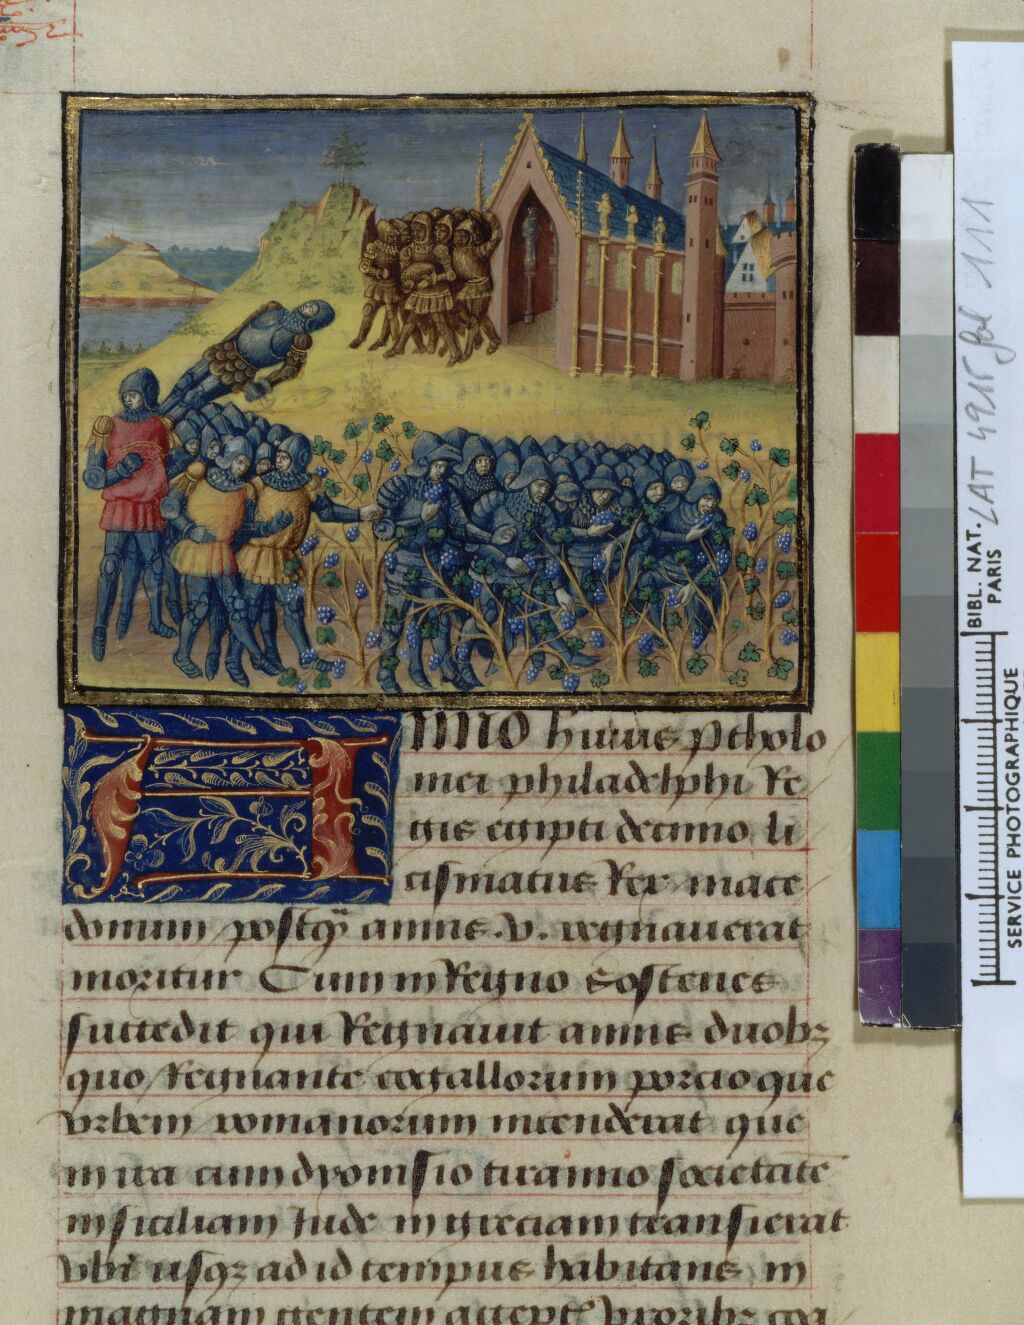 Anno huius ptholo
mei philadelphi Re
gis egipti decimo li
cismatus Rex mace
donum postq̄ annis .v. regnauerat
moritur Cum in Regno Sostenes
succedit qui Regnauit annis duobꝫ
quo Regnante eogallorum porcio que
vrbem romanorum incenderat que
in ita cum dyonisio tiranno societatē
in siciliam Inde in greciam transierat
vbi usqꝫ ad id tempus habitans in
magnam gentem
LAT 4915 fol 111
BIBL. NAT.
PARIS
SERVICE PHOTOGRAPHIQUE